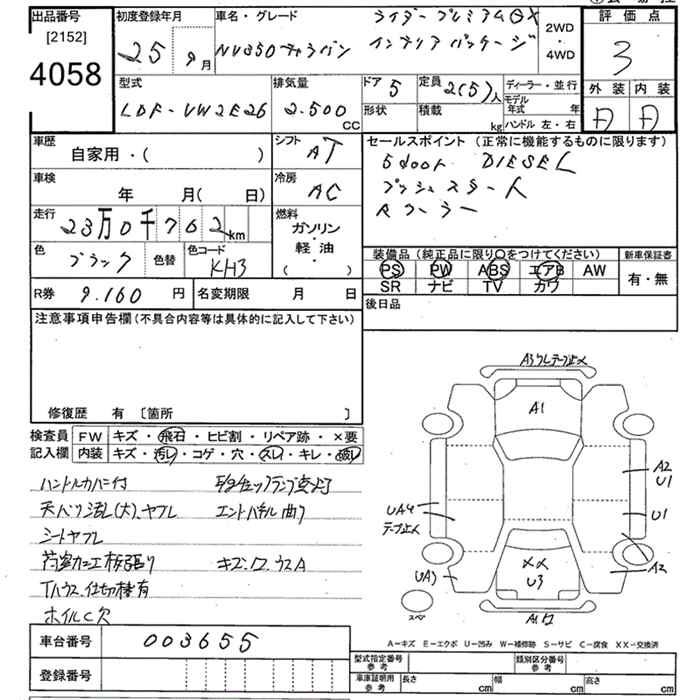 出品番号 [2152] 4058
初度登録年月 25年9月
車名・グレード NV350キャラバン ライダープレミアムGX インテリアパッケージ
2WD・4WD
評価点 3
外装 A 内装 A
型式 LDF-VW2E26
排気量 2.500 CC
ドア 5 形状
定員 2(5)人 積載 kg
ディーラー・並行
モデル年式 年
ハンドル 左・右
車歴 自家用・( )
シフト AT
車検 年 月( 日)
冷房 AC
走行 23万0千762km
燃料 ガソリン・軽油・( )
色 ブラック 色替 色コード KH3
セールスポイント (正常に機能するものに限ります)
5door DIESEL
プッシュスタート
Rクーラー
装備品(純正品に限り○をつけてください) 新車保証書
PS PW ABS エアB AW 有・無
SR ナビ TV カワ
R券 9.160円 名変期限 月 日
後日品
注意事項申告欄(不具合内容等は具体的に記入して下さい)
修復歴 有 [箇所 ]
検査員 FW キズ・飛石・ヒビ割・リペア跡・×要
記入欄 内装 キズ・汚レ・コゲ・穴・スレ・キレ・破レ
ハンドルカバー付 エンジンチェックランプ点灯
天バリ汚レ(大)、ヤブレ エンドパネル曲り
シートヤブレ
荷室加工板張り キズ、ワレ、ウスA
Tハウス、仕切棒有
ホイルC欠
A1
A2
U1
UA4
テープ止メ
U1
××
U3
UA3
A2
スペア
A-キズ E-エクボ U-凹み W-補修跡 S-サビ C-腐食 XX-交換済
車台番号 003655
登録番号
型式指定番号 参考 類別区分番号 参考
車庫証明用 参考 長さ cm 幅 cm 高さ cm